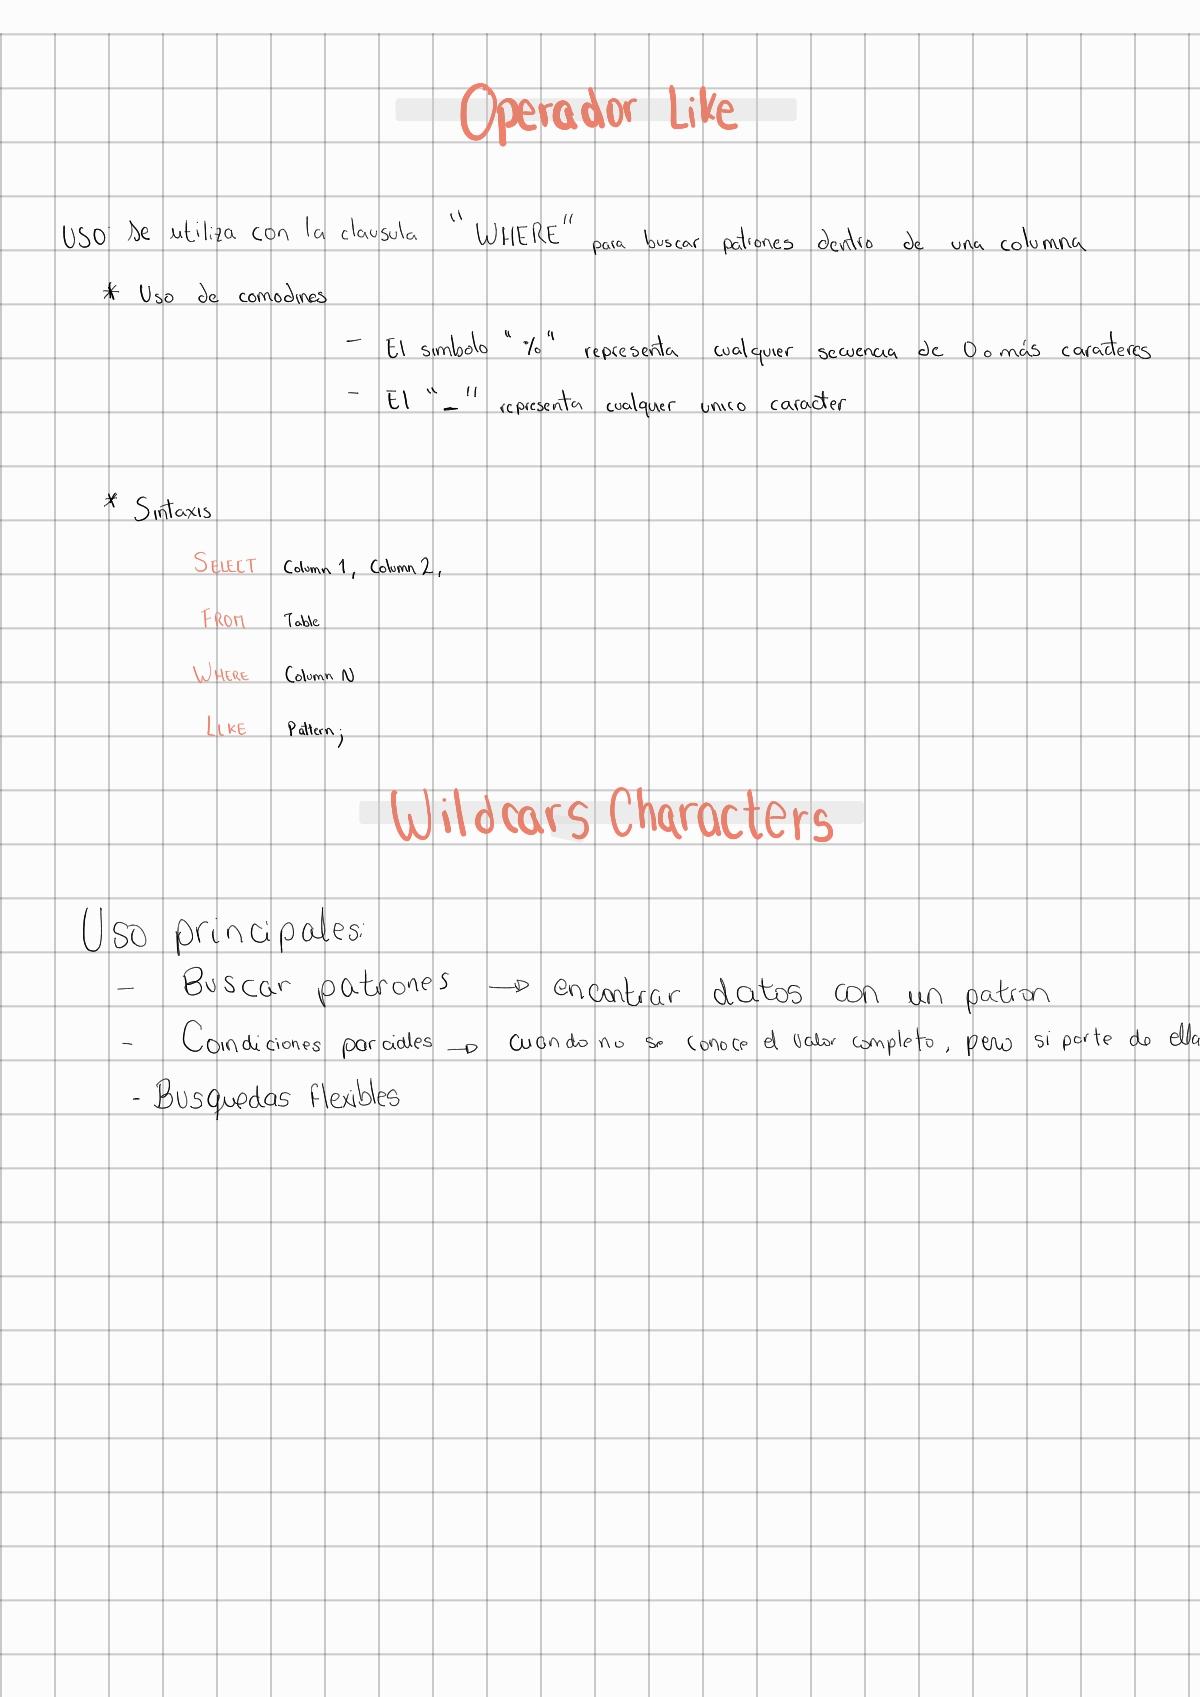 Operador Like
USO Se utiliza con la clausula "WHERE" para buscar patrones dentro de una columna
* Uso de comodines
- El simbolo "%" representa cualquier secuencia de 0 o más caracteres
- El "_" representa cualquer unico caracter
* Sintaxis
SELECT Column 1, Column 2,
FROM Table
WHERE Column N
LIKE Pattern;
Wildcars Characters
Uso principales:
- Buscar patrones → encontrar datos con un patron
- Condiciones parciales → cuando no se conoce el valor completo, pero si parte de ella
- Busquedas flexibles